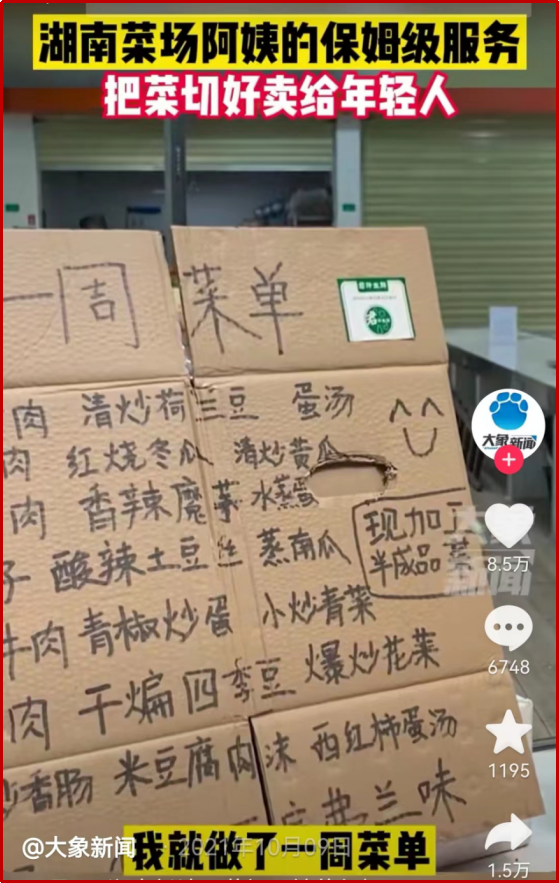 湖南菜场阿姨的保姆级服务
把菜切好卖给年轻人
一周 菜单
肉 清炒荷兰豆 蛋汤
肉 红烧冬瓜 清炒黄瓜
肉 香辣魔芋 水蒸蛋
子 酸辣土豆丝 蒸南瓜
牛肉 青椒炒蛋 小炒青菜
肉 干煸四季豆 爆炒花菜
炒香肠 米豆腐肉沫 西红柿蛋汤
弗兰味
现加工
半成品菜
大象新闻
大象
新闻
8.5万
6748
1195
1.5万
@大象新闻 2021年10月09日
我就做了一周菜单